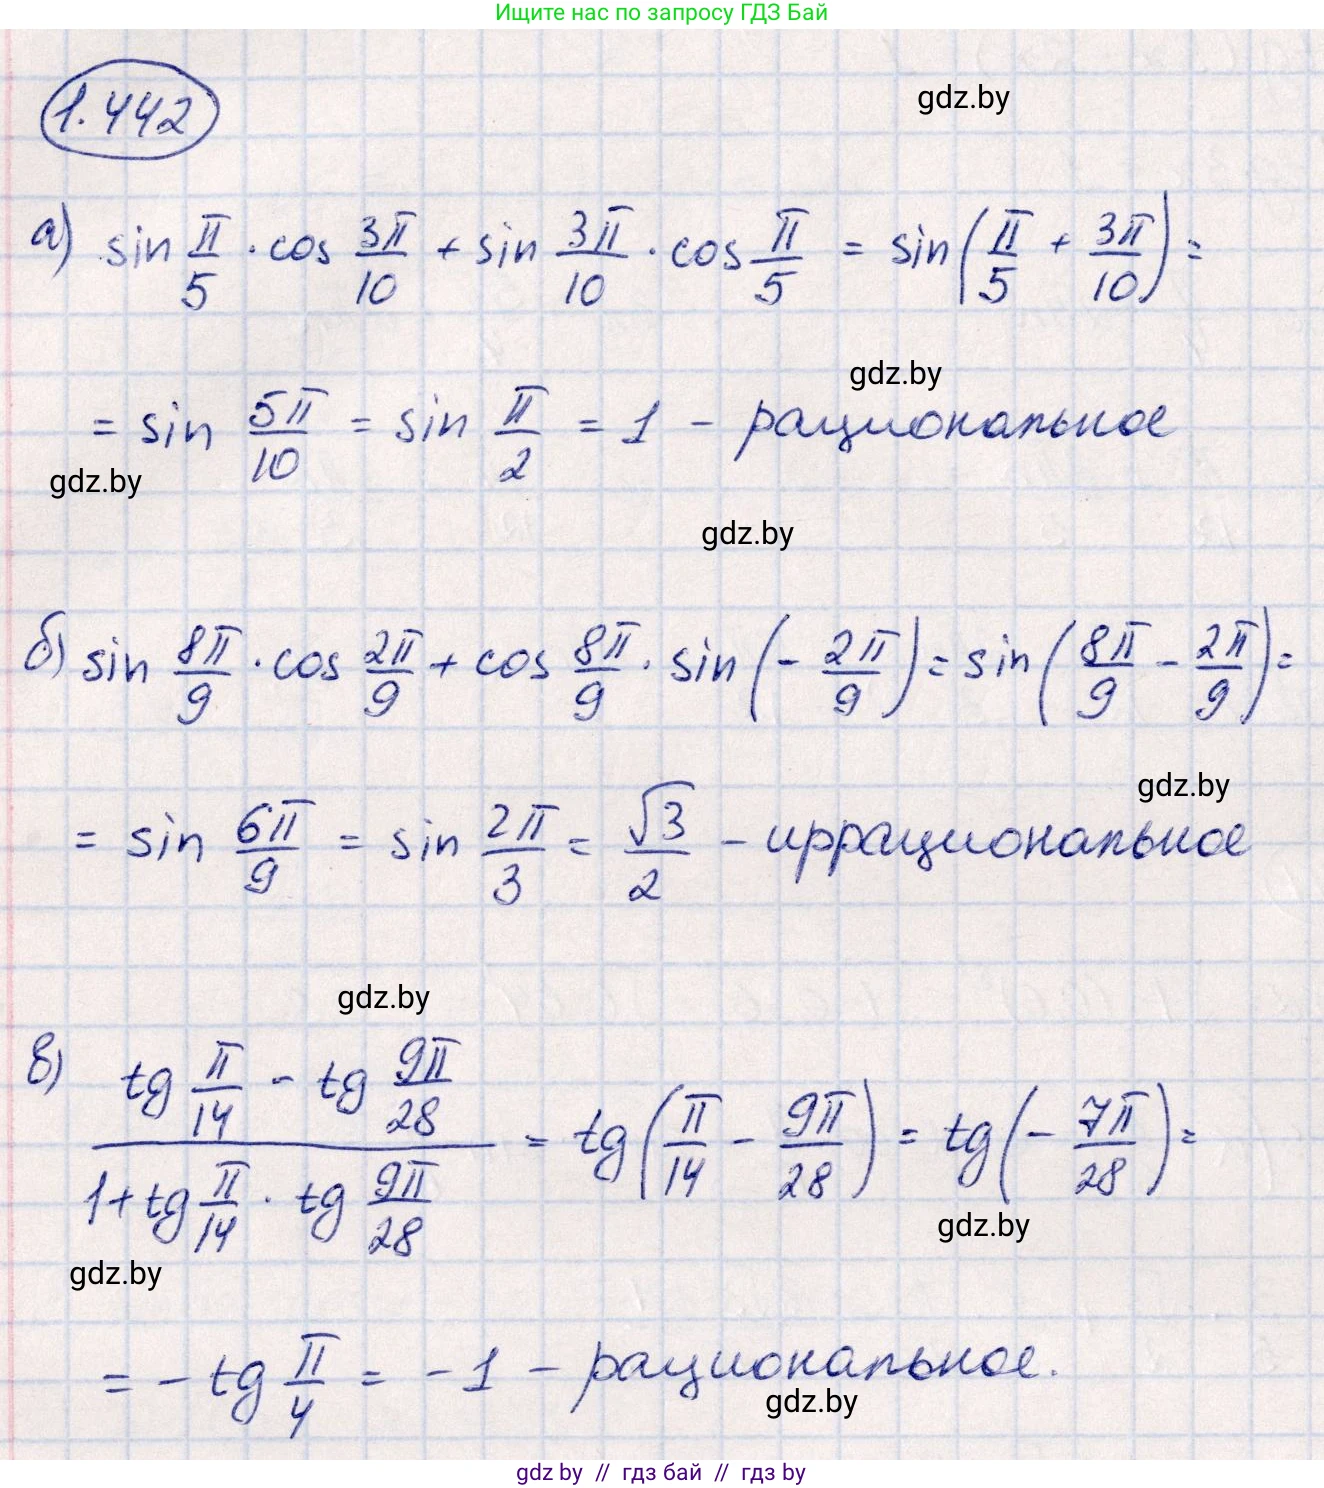 Ищите нас по запросу ГДЗ Бай
1.442
gdz.by
а) sin π/5 · cos 3π/10 + sin 3π/10 · cos π/5 = sin(π/5 + 3π/10) =
gdz.by
= sin 5π/10 = sin π/2 = 1 - рациональное
gdz.by
gdz.by
б) sin 8π/9 · cos 2π/9 + cos 8π/9 · sin(- 2π/9) = sin(8π/9 - 2π/9) =
gdz.by
= sin 6π/9 = sin 2π/3 = √3/2 - иррациональное
gdz.by
в) (tg π/14 - tg 9π/28)/(1+tg π/14 · tg 9π/28) = tg(π/14 - 9π/28) = tg(- 7π/28) =
gdz.by
gdz.by
= - tg π/4 = -1 - рациональное.
gdz.by
gdz by // гдз бай // гдз by